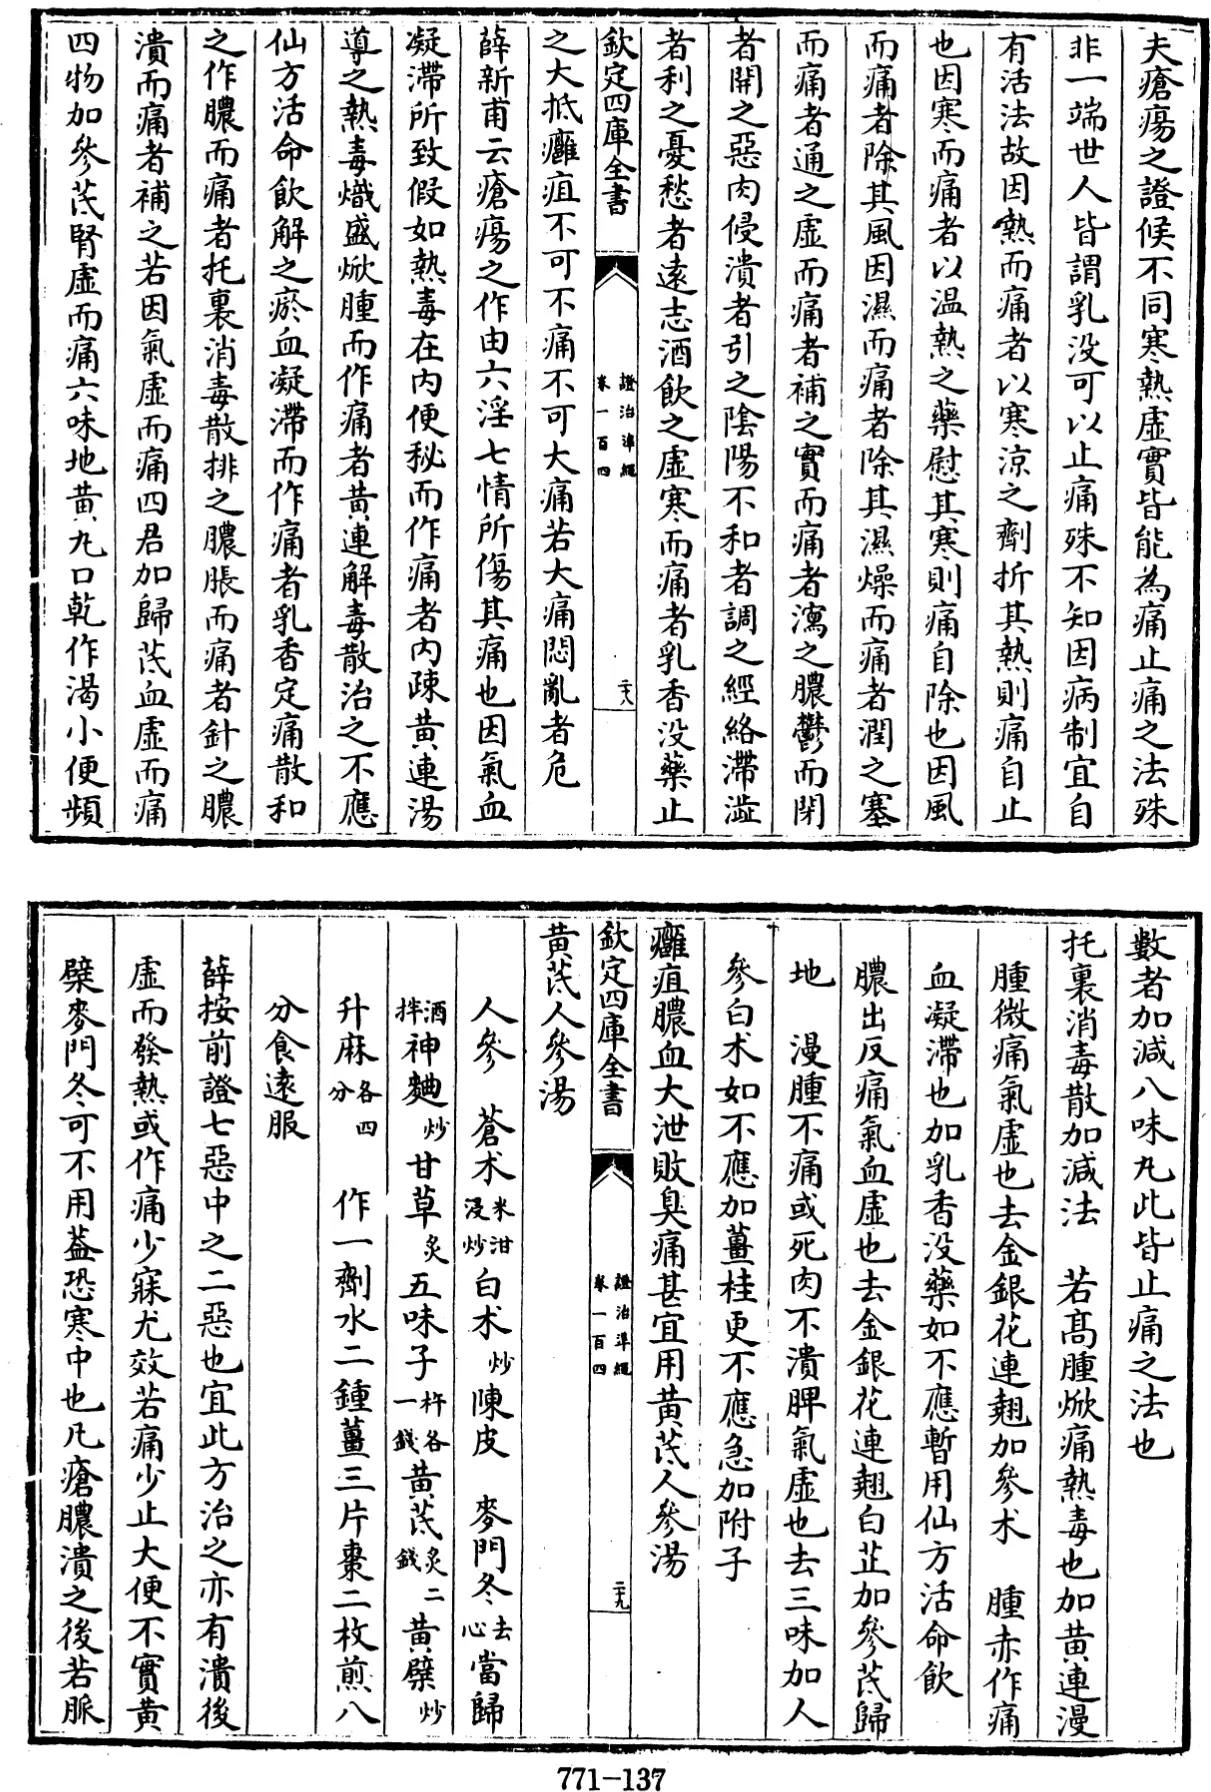 夫瘡瘍之證候不同寒熱虛實皆能為痛止痛之法殊
非一端世人皆謂乳没可以止痛殊不知因病制宜自
有活法故因熱而痛者以寒涼之劑折其熱則痛自止
也因寒而痛者以温熱之藥慰其寒則痛自除也因風
而痛者除其風因濕而痛者除其濕燥而痛者潤之塞
而痛者通之虛而痛者補之實而痛者瀉之膿鬱而閉
者開之惡肉侵潰者引之陰陽不和者調之經絡滯澁
者利之憂愁者遠志酒飲之虛寒而痛者乳香没藥止
欽定四庫全書
證治凖繩
卷一百四
二十八
之大抵癰疽不可不痛不可大痛若大痛悶亂者危
薛新甫云瘡瘍之作由六淫七情所傷其痛也因氣血
凝滯所致假如熱毒在内便秘而作痛者内疎黄連湯
導之熱毒熾盛焮腫而作痛者黄連解毒散治之不應
仙方活命飲解之瘀血凝滯而作痛者乳香定痛散和
之作膿而痛者托裏消毒散排之膿脹而痛者針之膿
潰而痛者補之若因氣虛而痛四君加歸芪血虛而痛
四物加參芪腎虛而痛六味地黄丸口乾作渴小便頻
數者加減八味丸此皆止痛之法也
托裏消毒散加減法　若髙腫焮痛熱毒也加黄連漫
腫微痛氣虛也去金銀花連翹加參术　腫赤作痛
血凝滯也加乳香没藥如不應暫用仙方活命飲
膿出反痛氣血虛也去金銀花連翹白芷加參芪歸
地　漫腫不痛或死肉不潰脾氣虛也去三味加人
參白术如不應加薑桂更不應急加附子
癰疽膿血大泄敗臭痛甚宜用黄芪人參湯
欽定四庫全書
證治準繩
卷一百四
二十九
黄芪人參湯
人參　蒼术米泔浸炒白术炒陳皮　麥門冬去心當歸
酒拌神麯炒甘草炙五味子杵各一錢黄芪炙二錢黄檗炒
升麻各四分　作一劑水二鍾薑三片棗二枚煎八
分食遠服
薛按前證七惡中之二惡也宜此方治之亦有潰後
虛而發熱或作痛少寐尤效若痛少止大便不實黄
檗麥門冬可不用葢恐寒中也凡瘡膿潰之後若脈
771-137